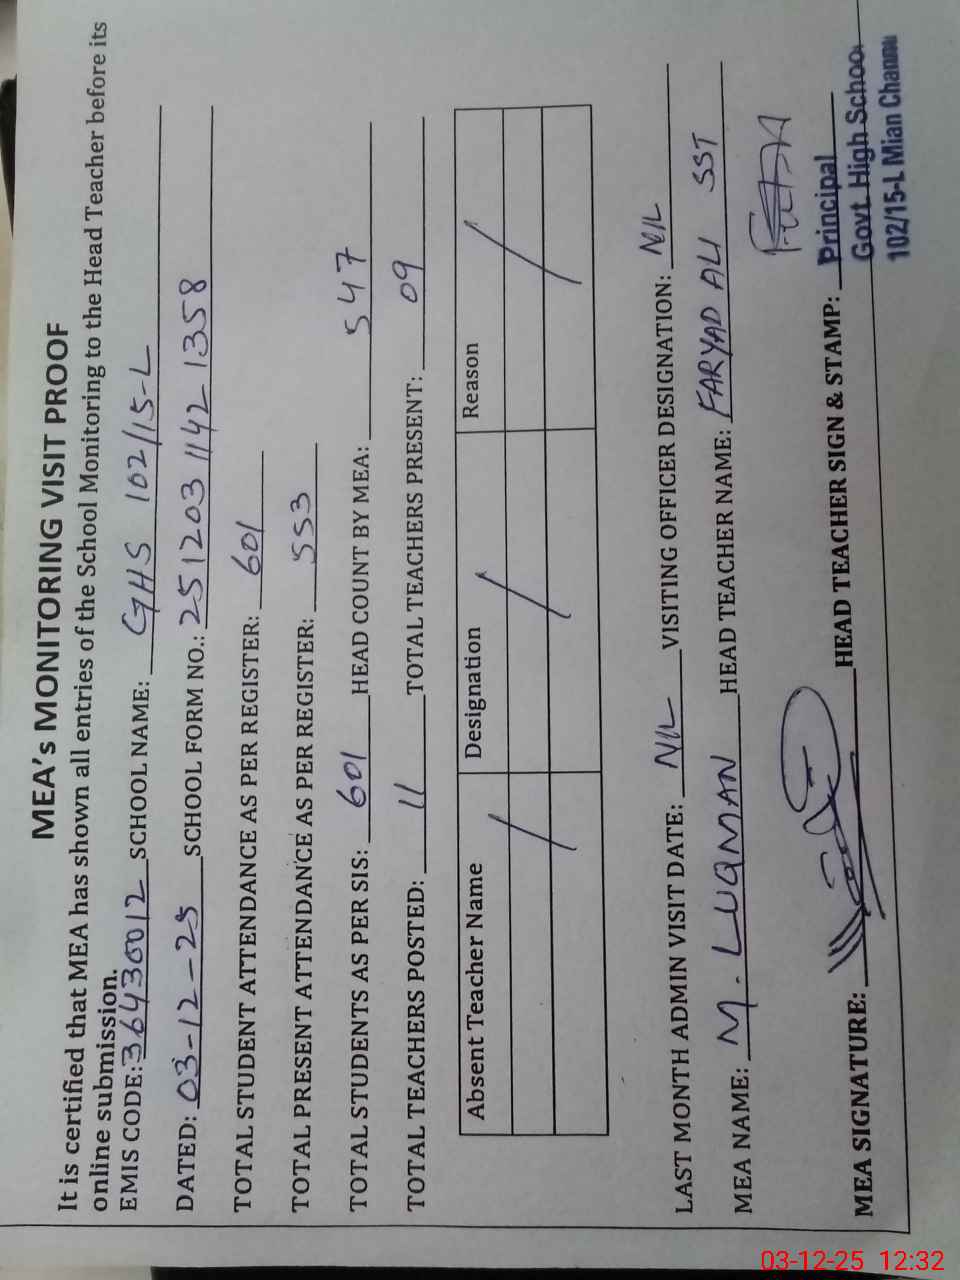 MEA's MONITORING VISIT PROOF
It is certified that MEA has shown all entries of the School Monitoring to the Head Teacher before its
online submission.
EMIS CODE: 36430012 SCHOOL NAME: GHS 102/15-L
DATED: 03-12-25 SCHOOL FORM NO.: 251203 1142 1358
TOTAL STUDENT ATTENDANCE AS PER REGISTER: 601
TOTAL PRESENT ATTENDANCE AS PER REGISTER: 553
TOTAL STUDENTS AS PER SIS: 601 HEAD COUNT BY MEA: 547
TOTAL TEACHERS POSTED: 11 TOTAL TEACHERS PRESENT: 09
Absent Teacher Name Designation Reason
/ / /
LAST MONTH ADMIN VISIT DATE: NIL VISITING OFFICER DESIGNATION: NIL
MEA NAME: M. LUQMAN HEAD TEACHER NAME: FARYAD ALI SST
MEA SIGNATURE: HEAD TEACHER SIGN & STAMP: Principal
Govt. High School
102/15-L Mian Channu
03-12-25 12:32